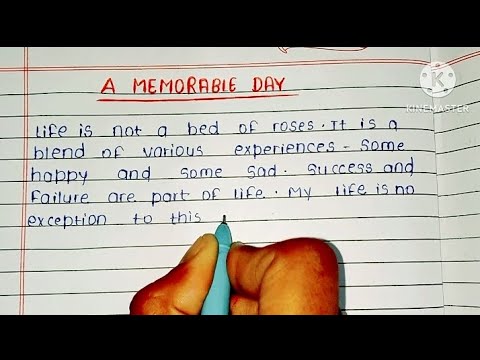 A MEMORABLE DAY
KINEMASTER
Life is not a bed of roses. It is a
blend of various experiences - some
happy and some sad. Success and
Failure are part of life. My life is no
exception to this